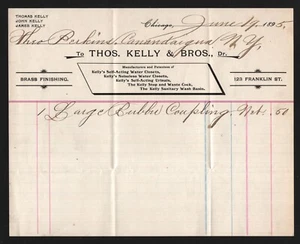 THOMAS KELLY
JOHN KELLY
JAMES KELLY
Chicago, June 14, 1895,
Theo Perkins, Canandaigua N.Y.
To THOS. KELLY & BROS., Dr.
BRASS FINISHING.
Manufacturers and Patentees of
Kelly's Self-Acting Water Closets,
Kelly's Noiseless Water Closets,
Kelly's Self-Acting Urinals,
The Kelly Stop and Waste Cock,
The Kelly Sanitary Wash Basin.
123 FRANKLIN ST.
1 Large Rubber Coupling, Net. 50